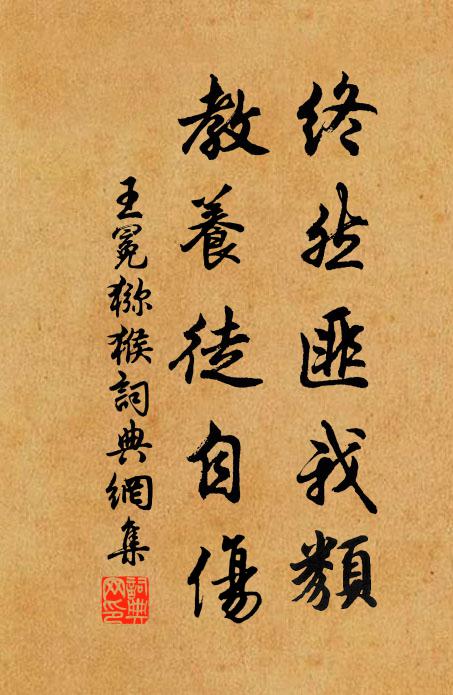 終然匪我類
教養徒自傷
王冕獼猴詞典網集
詞典
网印